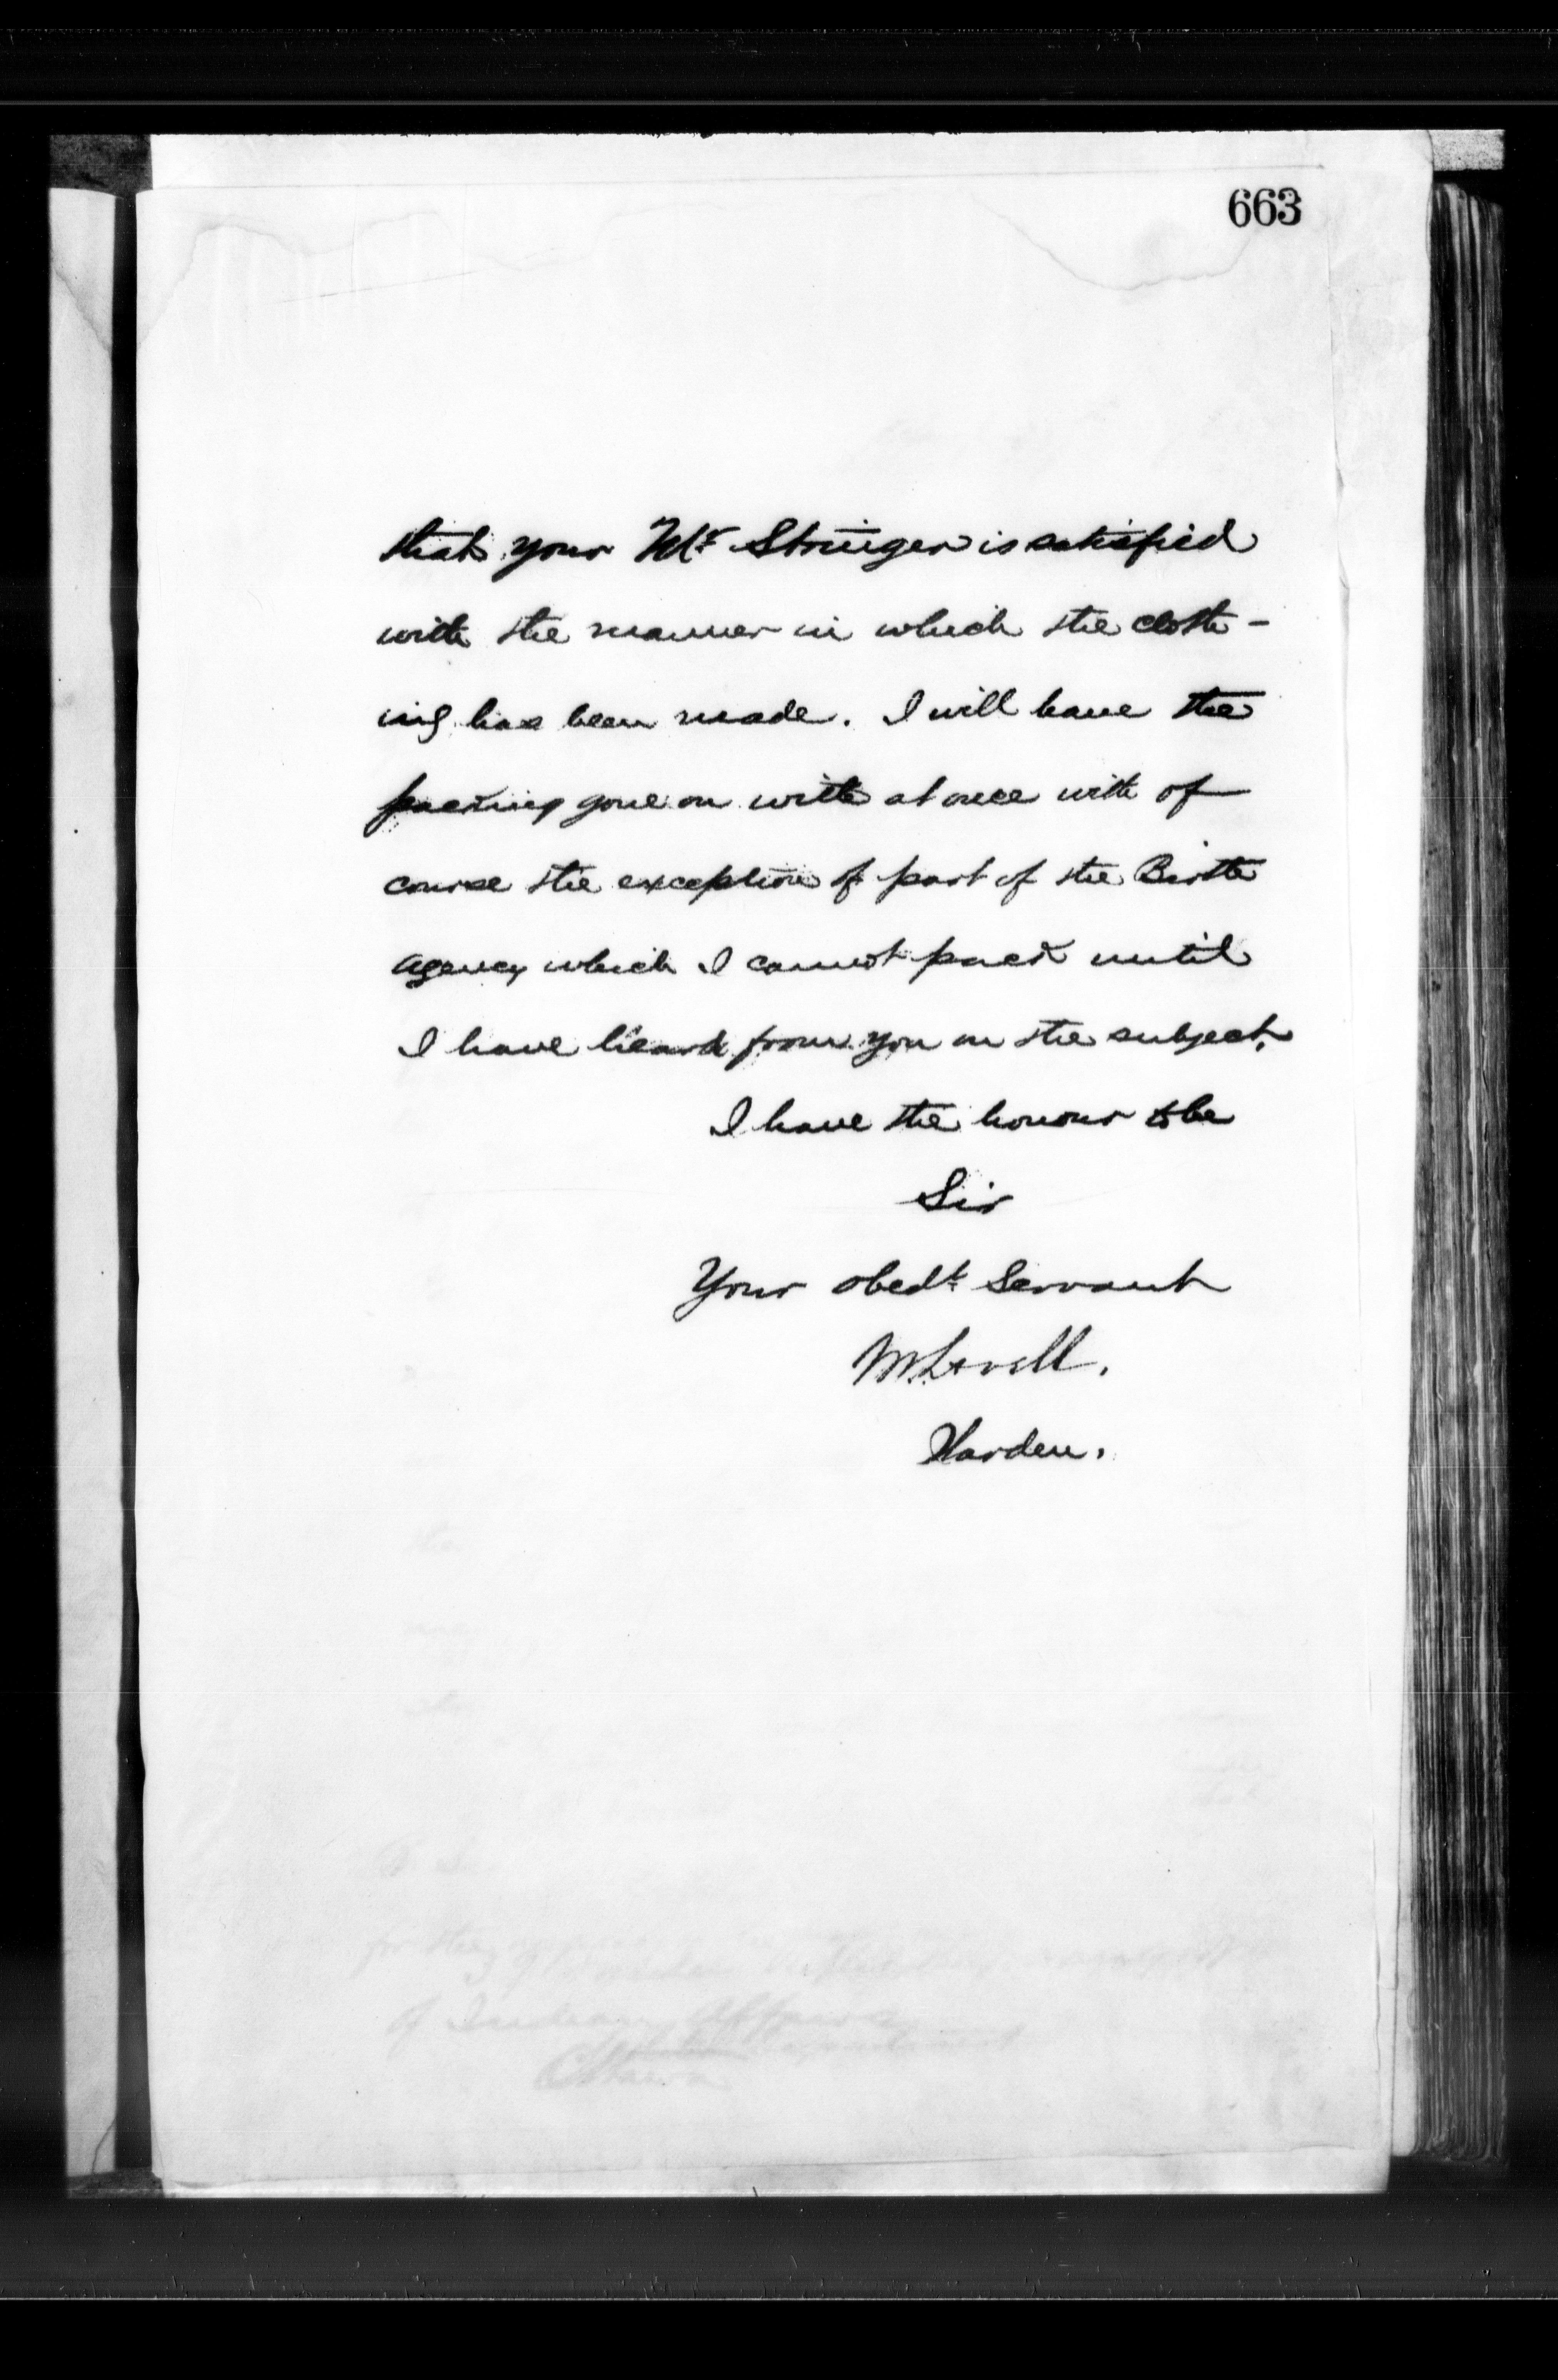 663
that your Mr Stringer is satisfied
with the manner in which the cloth-
ing has been made. I will have the
packing gone on with at once with of
course the exception of part of the Birtle
agency which I cannot pack until
I have heard from you on the subject.
I have the honour to be
Sir
Your obedt Servant
M. Lavell.
Warden.
of Indian Affairs
Ottawa